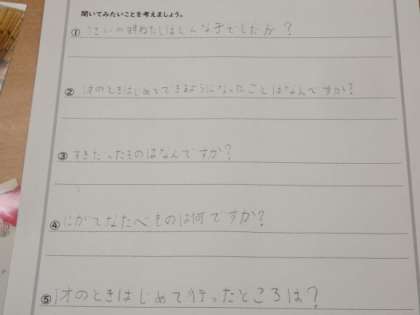 聞いてみたいことを考えましょう。
① うさいの時わたしはどんな子でしたか？
② 1才のときはじめてできるようになったことはなんですか？
③ すきだったものはなんですか？
④ にがてなたべものは何ですか？
⑤ 1才のときはじめて行ったところは？